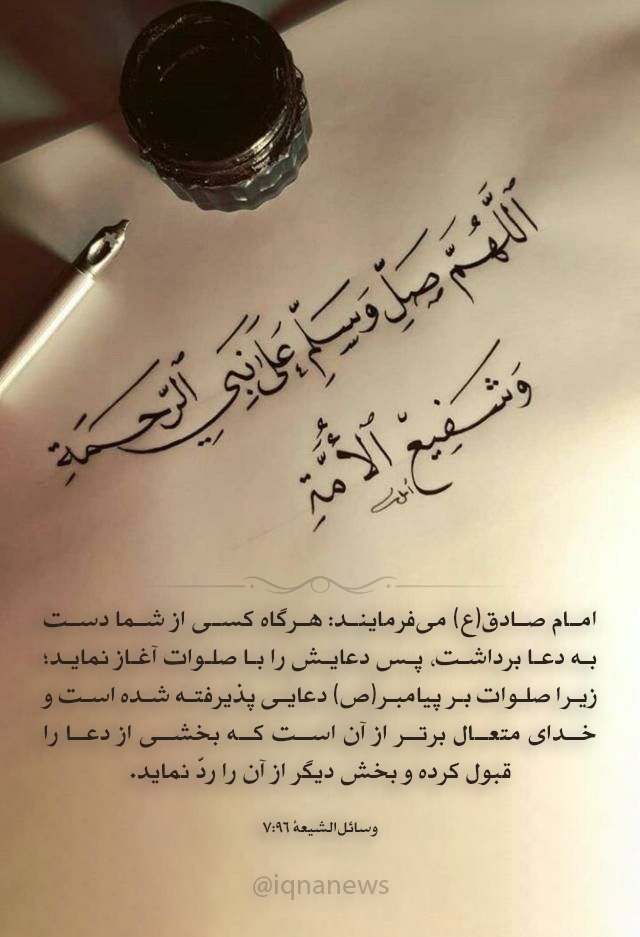 اَللّٰهُمَّ صَلِّ وَسَلِّمْ عَلىٰ نَبِيِّ ٱلرَّحمَةِ
وَشَفِيعِ ٱلأُمَّةِ
امام صادق(ع) می‌فرمایند: هرگاه کسی از شما دست
به دعا برداشت، پس دعایش را با صلوات آغاز نماید؛
زیرا صلوات بر پیامبر(ص) دعایی پذیرفته شده است و
خدای متعال برتر از آن است که بخشی از دعا را
قبول کرده و بخش دیگر از آن را ردّ نماید.
وسائل‌الشیعهٔ ۷:۹۶
@iqnanews